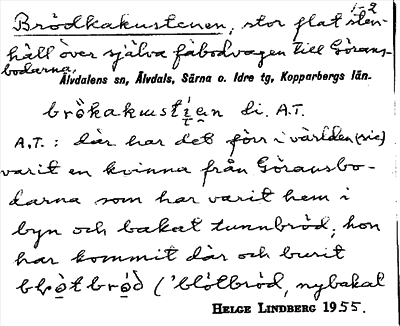 1-2
Brödkakustenen, stor flat sten-
häll över själva fäbodvägen till Görans-
bodarna,
Älvdalens sn, Älvdals, Särna o. Idre tg, Kopparbergs län.
brö̀kakustịẹn di. A.T.
A.T.: där har det förr i världen (sic)
varit en kvinna från Göransbo-
darna som har varit hem i
byn och bakat tunnbröd; hon
har kommit där och burit
blọ̀tbrọ́d ('blötbröd, nybakat
HELGE LINDBERG 1955.